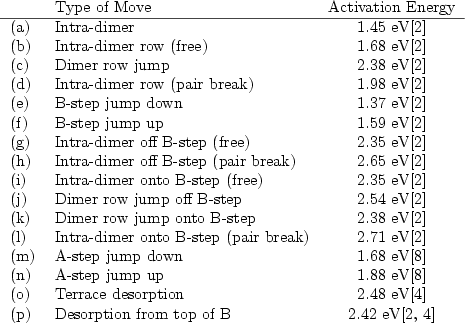 Type of Move Activation Energy
(a) Intra-dimer 1.45 eV[2]
(b) Intra-dimer row (free) 1.68 eV[2]
(c) Dimer row jump 2.38 eV[2]
(d) Intra-dimer row (pair break) 1.98 eV[2]
(e) B-step jump down 1.37 eV[2]
(f) B-step jump up 1.59 eV[2]
(g) Intra-dimer off B-step (free) 2.35 eV[2]
(h) Intra-dimer off B-step (pair break) 2.65 eV[2]
(i) Intra-dimer onto B-step (free) 2.35 eV[2]
(j) Dimer row jump off B-step 2.54 eV[2]
(k) Dimer row jump onto B-step 2.38 eV[2]
(l) Intra-dimer onto B-step (pair break) 2.71 eV[2]
(m) A-step jump down 1.68 eV[8]
(n) A-step jump up 1.88 eV[8]
(o) Terrace desorption 2.48 eV[4]
(p) Desorption from top of B 2.42 eV[2, 4]